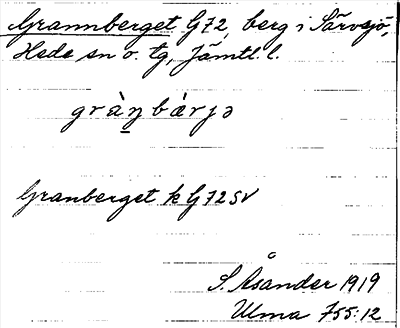 Grannberget G72, berg i Särvsjö,
Hede sn o. tg, Jämtl. l.
gràn̠bàrjə
Granberget k G72SV
S. Åsander 1919
Ulma 755:12